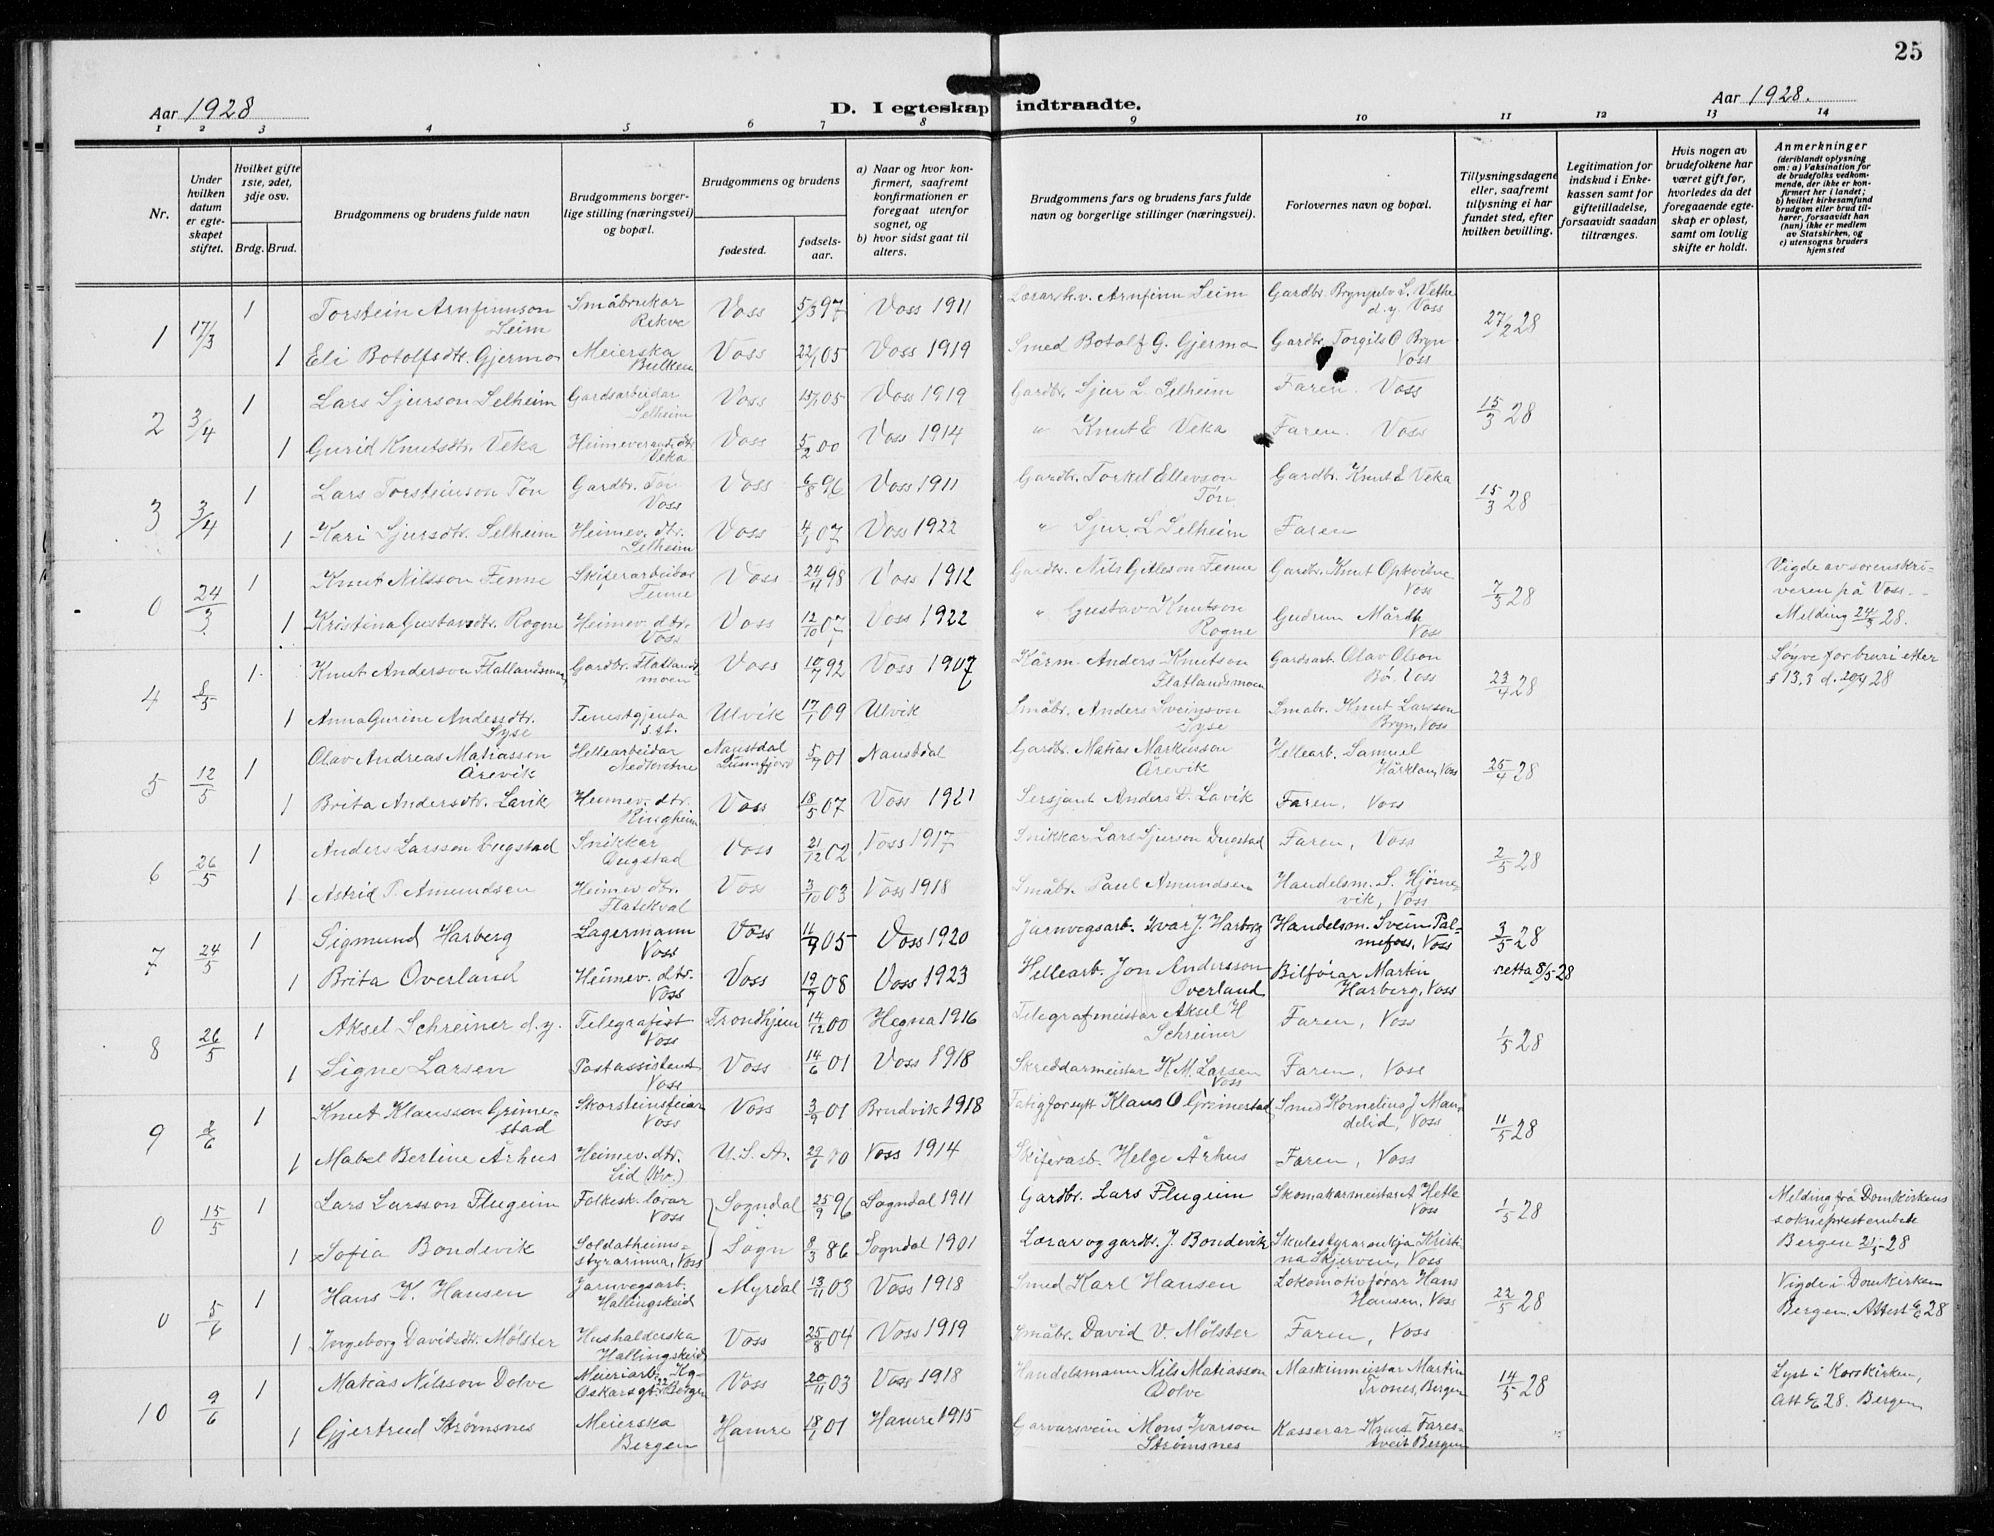 25
Aar 1928
D. I egteskap indtraadte.
Aar 1928.
1 2 3 4 5 6 7 8 9 10 11 12 13 14
Nr.
Under hvilken datum er egteskapet stiftet.
Hvilket gifte 1ste, 2det, 3dje osv.
Brdg. Brud.
Brudgommens og brudens fulde navn
Brudgommens borgerlige stilling (næringsvei) og bopæl.
Brudgommens og brudens
fødested.
fødselsaar.
a) Naar og hvor konfirmert, saafremt konfirmationen er foregaat utenfor sognet, og
b) hvor sidst gaat til alters.
Brudgommens fars og brudens fars fulde navn og borgerlige stillinger (næringsvei).
Forlovernes navn og bopæl.
Tillysningsdagene eller, saafremt tillysning ei har fundet sted, efter hvilken bevilling.
Legitimation for indskud i Enkekassen samt for giftetilladelse, forsaavidt saadan tiltrænges.
Hvis nogen av brudefolkene har været gift før, hvorledes da det foregaaende egteskap er opløst, samt om lovlig skifte er holdt.
Anmerkninger
(deriblandt oplysning om: a) Vaksination for de brudefolks vedkommende, der ikke er konfirmert her i landet;
b) hvilket kirkesamfund brudgom eller brud tilhører, forsaavidt han (hun) ikke er medlem av Statskirken, og
c) utensogns bruders hjemsted
1 17/3 1 Torstein Arnfinnson Seim Småbrukar Rekve Voss 5/3 97 Voss 1911 Lærar k.v. Arnfinn Seim Gardbr. Brynjulv L. Vethe d.y. Voss 27/2 28
1 Eli Botolfsdtr. Gjermo Meierska Bulken Voss 22/1 05 Voss 1919 Smed Botolf G. Gjermo Gardbr. Torgils O Bryn Voss
2 3/4 1 Lars Sjurson Selheim Gardsarbeidar Selheim Voss 05 Voss 1919 Gardbr. Sjur L. Selheim Faren. Voss 15/3 28
1 Gurid Knutsdtr. Veka Veka Voss 5/2 00 Voss 1914 " Knut E Veka Faren. Voss
3 3/4 1 Lars Torsteinson Tøn Gardbr. Tøn Voss Voss 6/8 96 Voss 1911 Gardbr. Torkel Ellevson Tøn Gardbr. Knut E Veka 15/3 28
1 Kari Sjursdtr. Selheim Heimev. dtr. Selheim Voss 4/1 07 Voss 1922 " Sjur L Selheim Faren
0 24/3 1 Knut Nilsson Fenne Skiferarbeidar Fenne Voss 24/4 98 Voss 1912 Gardbr. Nils Fenne Gardbr. Knut Voss 7/3 28 Vigde av sorenskriveren på Voss. Melding 24/3 28.
1 Kristina Gustavsdtr. Rogne Heimev. dtr. Voss Voss 12/10 07 Voss 1922 " Gustav Knutson Rogne Gudrun Voss
4 8/5 1 Knut Anderson Flatlandsmoen Gardbr. Flatlandsmoen Voss 10/7 92 Voss 1907 Kårm. Anders Knutson Flatlandsmoen Gardsarb. Olav Olson Bø. Voss 23/4 28 Søyve for brur etter § 13,3 d. 20/4 28
1 Anna Gurine Andersdtr. Syse Tenestgjenta s.st. Ulvik 17/1 09 Ulvik Småbr. Anders Sveinson Syse Småbr. Knut Larsson Bryn, Voss
5 12/5 1 Olav Andreas Matiasson Årevik Hellearbeidar Naustdal Sunnfjord 5/9 01 Naustdal Gardbr. Matias Markusson Årevik Hellearb. Samuel Voss 25/4 28
1 Brita Andersdtr. Lavik Heimev. dtr. Ringheim Voss 18/5 07 Voss 1921 Sersjant Anders D. Lavik Faren, Voss
6 26/5 1 Anders Larsson Dugstad Snikkar Dugstad Voss 21/12 02 Voss 1917 Snikkar Lars Sjurson Dugstad Faren, Voss 2/5 28
1 Astrid P Amundsen Heimev. dtr. Flatekval Voss 3/10 03 Voss 1918 Småbr. Paul Amundsen Handelsm. S. Hjørnevik, Voss
7 24/5 1 Sigmund Harberg Lagermann Voss Voss 11/9 05 Voss 1920 Jarnvegsarb. Ivar J. Harberg Handelsm. Svein Palmefoss, Voss 3/5 28
1 Brita Overland Heimev. dtr. Voss Voss 19/9 08 Voss 1923 Hellearb. Jon Andersson Overland Bilførar Martin Harberg, Voss retta 8/5-28
8 26/5 1 Aksel Schreiner d.y. Telegrafist Voss Trondhjem 14/12 00 Hegna 1916 Telegrafmeistar Aksel H Schreiner Faren, Voss 1/5 28
1 Signe Larsen Postassistent Voss Voss 14/6 01 Voss 1918 Skreddarmeistar K. M. Larsen Voss Faren, Voss
9 2/6 1 Knut Klausson Grimestad Skorsteinsfeiar Voss Voss 3/9 01 Bruvik 1918 Fatigforsytt Klaus O Grimestad Smed Kornelius J Mandelid, Voss 11/5 28
1 Mabel Bertine Århus Heimev. dtr. Lid (Kv.) U.S.A. 00 Voss 1914 Skiferarb. Helge Århus Faren, Voss
0 15/5 1 Lars Larsson Flugeim Folkesk. lærar Voss Sogndal Sogn 25/9 96 Sogndal 1911 Gardbr. Lars Flugeim Skomakarmeistar A Hetle Voss 1/5 28 Melding frå Domkirkens sokneprestembete Bergen 21/5-28
1 Sofia Bondevik Soldatheimsstyrarinna, Voss 8/3 86 Sogndal 1901 Lærar og gardbr. J. Bondevik Skulestyrarenkja Kristina Skjerven, Voss
0 5/6 1 Hans K. Hansen Jarnvegsarb. Hallingskeid Myrdal 13/11 03 Voss 1918 Smed Karl Hansen Lokomotivførar Hans Hansen, Voss 22/5 28 Vigde i Domkirken Bergen. Attest 6/6 28
1 Ingeborg Davidsdtr. Mølster Hushalderska Hallingskeid Voss 25/8 04 Voss 1919 Småbr. David V. Mølster Faren, Voss
10 9/6 1 Matias Nilsson Dolve Meieriarb. Kg. Oskarsgt. 22 Bergen Voss 20/11 03 Voss 1918 Handelsmann Nils Matiasson Dolve Maskinmeistar Martin Trones, Bergen 14/5 28 Lyst i Korskirken, Att 6/6 28. Bergen
1 Gjertrud Strømsnes Meierska Bergen Hamre 18/1 01 Hamre 1915 Garvarsvein Mons Ivarson Strømsnes Kasserar Knut Farestveit Bergen